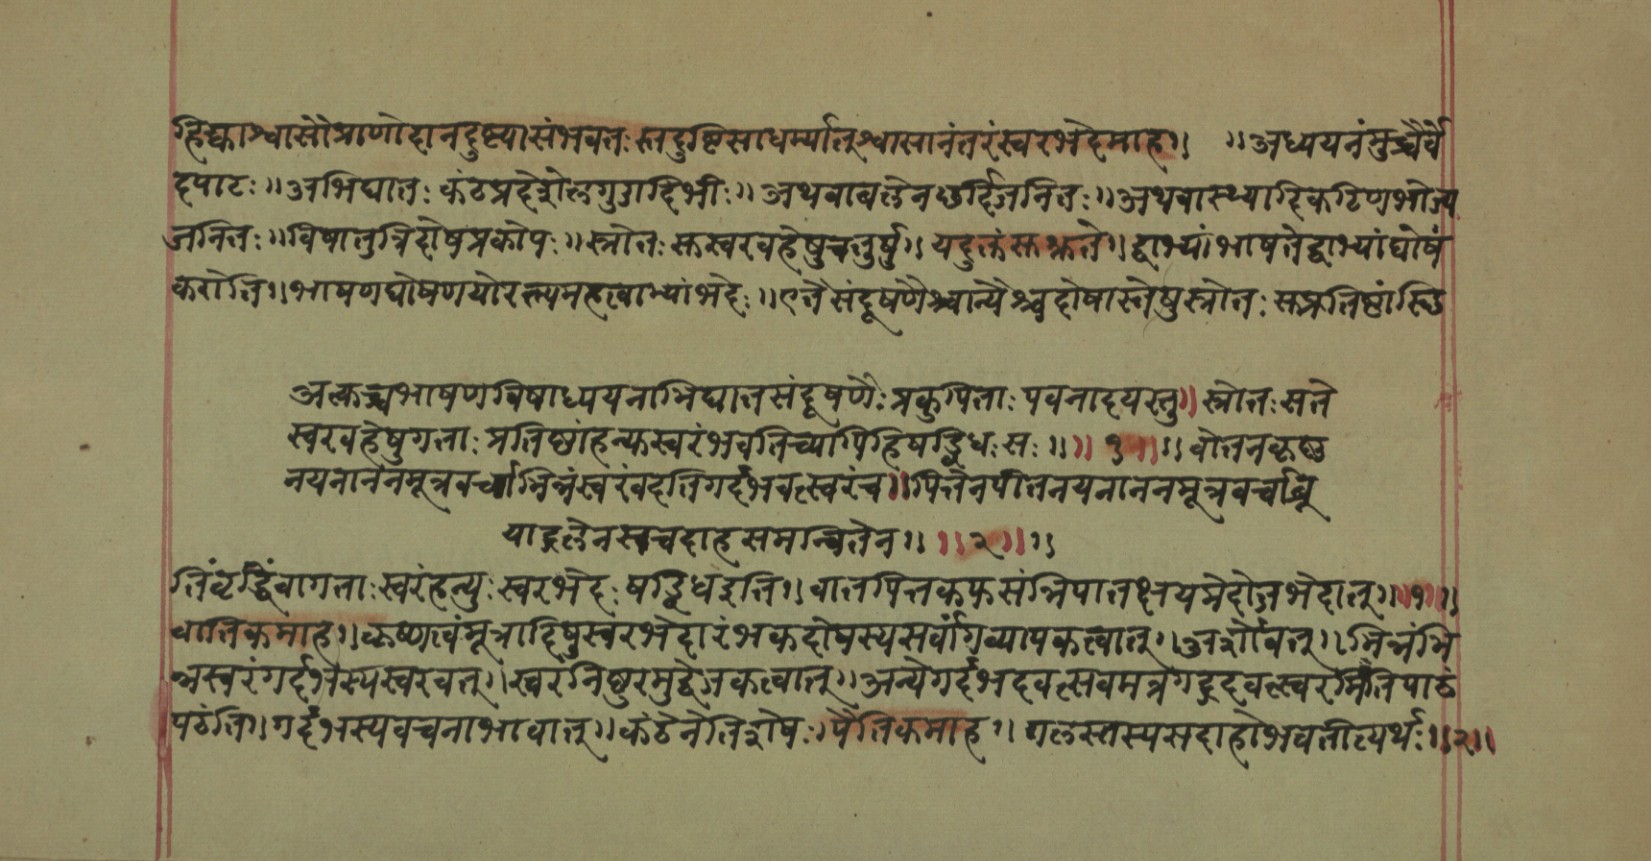 हिक्काश्वासौप्राणोदानदुष्ट्यासंभवतःस्तद्दुष्टिसाधर्म्यात्श्वासानंतरंस्वरभेदमाह।। ॥अध्ययनंमुच्चैर्वे
दपाठः॥अभिघातः कंठप्रदेशेलगुडादिभीः॥अथवाबलेनछर्दिजनितः॥अथवास्थ्यादिकठिणभोज्य
जनितः॥विषात्तुत्रिदोषप्रकोपः॥स्त्रोतःस्तस्वरवहेषुचतुर्षु॥यदुक्तंसुश्रुते॥द्वाभ्यांभाषतेद्वाभ्यांघोषं
करोति॥भाषणघोषणयोरल्पमहत्वाभ्यांभेदः॥एतैसंदूषणैश्चान्यैश्चदोषास्तेषुस्त्रोतःसप्रतिष्ठांस्थि
अत्युच्चभाषणविषाध्ययनाभिघातसंदूषणैःप्रकुपिताःपवनादयस्तु॥स्त्रोतःसते
स्वरवहेषुगताःप्रतिष्ठांहन्युस्वरंभवतिच्यापिहिषड्विधःसः॥ ॥१॥ ॥वातेनकृष्ण
नयनाननमूत्रवर्च्चाभिन्नंस्वरंवदतिगर्दभवत्स्वरंच॥पित्तेनपीतनयनाननमूत्रवर्च्चाब्रू
याद्गलेनसचदाहसमन्वितेन॥ ॥२॥ ॥
तिंवृद्धिंवागताःस्वरंहन्युःस्वरभेदःषड्विधइति॥वातपित्तकफसंन्निपातक्षयमेदोजभेदात्॥॥१॥॥
वातिकमाह॥कृष्णत्वंमूत्रादिषुस्वरभेदारंभकदोषस्यसर्वांगव्यापकत्वात्॥अर्शोवत्॥भिन्नंभि
न्नस्वरंगर्दभस्यस्वरवत्॥खरंनिष्ठुरमुद्वेजकत्वात्॥अन्येगर्दभदवत्सवमत्रगद्गदवत्स्वरमितिपाठं
पठंति॥गर्दभस्यवचनाभावात्॥कंठेनेतिशेषः॥पैत्तिकमाह॥गलस्तस्यसदाहोभवतीत्यर्थः॥२॥